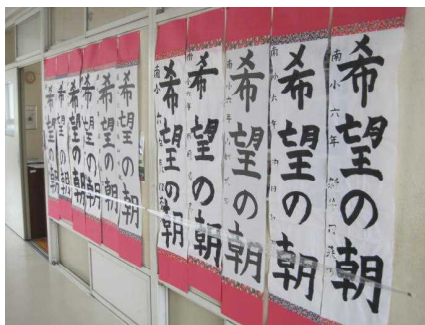 希望の朝
南小六年
希望の朝
南小六年
希望の朝
南小六年
希望の朝
希望の朝
南小六年
希望の朝
希望の朝
希望の朝
希望の朝
希望の朝
希望の朝